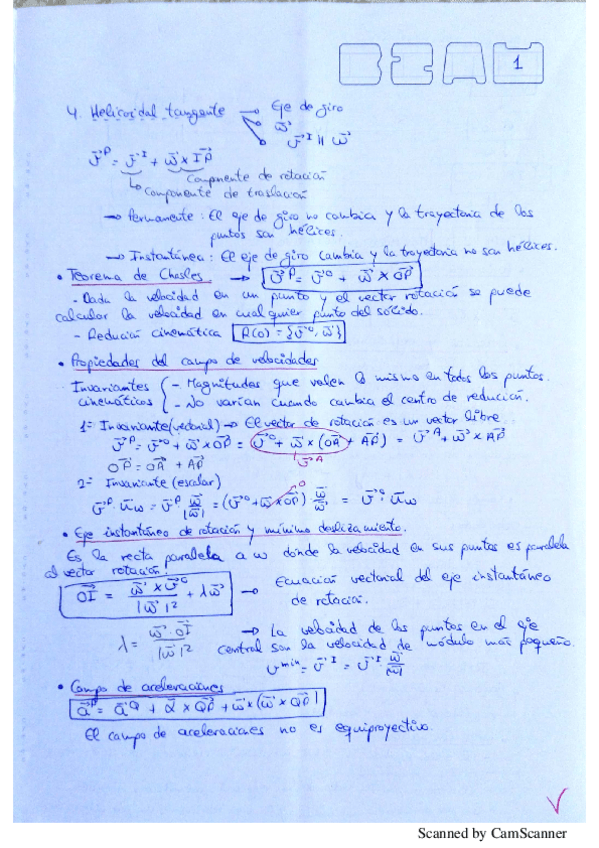 1
4. Helicoidal tangente → Eje de giro
ω⃗
v⃗ᴵ || ω⃗
v⃗ᴾ = v⃗ᴵ + ω⃗ × IP⃗
Componente de rotación
Componente de traslación
→ Permanente: El eje de giro no cambia y la trayectoria de los
puntos son hélices.
→ Instantánea: El eje de giro cambia y la trayectoria no son hélices.
• Teorema de Chasles → v⃗ᴾ = v⃗⁰ + ω⃗ × OP⃗
- Dada la velocidad en un punto y el vector rotación se puede
calcular la velocidad en cualquier punto del sólido.
- Redución cinemática R(O) = {v⃗⁰, ω⃗}
• Propiedades del campo de velocidades
Invariantes { - Magnitudes que valen lo mismo en todos los puntos.
cinemáticos { - No varían cuando cambia el centro de redución.
1º Invariante (vectorial) → El vector de rotación es un vector libre.
v⃗ᴾ = v⃗⁰ + ω⃗ × OP⃗ = v⃗⁰ + ω⃗ × (OA⃗ + AP⃗) = v⃗ᴬ + ω⃗ × AP⃗
OP⃗ = OA⃗ + AP⃗ v⃗ᴬ
2º Invariante (escalar)
v⃗ᴾ · u⃗ω = v⃗ᴾ · ω⃗/|ω⃗| = (v⃗⁰ + ω⃗ × OP⃗) · ω⃗/ω = v⃗⁰ · u⃗ω
0
• Eje instantáneo de rotación y mínimo deslizamiento.
Es la recta paralela a ω donde la velocidad en sus puntos es paralela
al vector rotación.
OI⃗ = (ω⃗ × v⃗⁰)/|ω⃗|² + λω⃗ → Ecuación vectorial del eje instantáneo
de rotación.
λ = (ω⃗ · OI⃗)/|ω⃗|² → La velocidad de los puntos en el eje
central son la velocidad de módulo más pequeño.
vᵐⁱⁿ = v⃗ᴵ = v⃗ᴵ · ω⃗/|ω⃗|
• Campo de aceleraciones
a⃗ᴾ = a⃗Q + α⃗ × QP⃗ + ω⃗ × (ω⃗ × QP⃗)
El campo de aceleraciones no es equiproyectivo.
Scanned by CamScanner